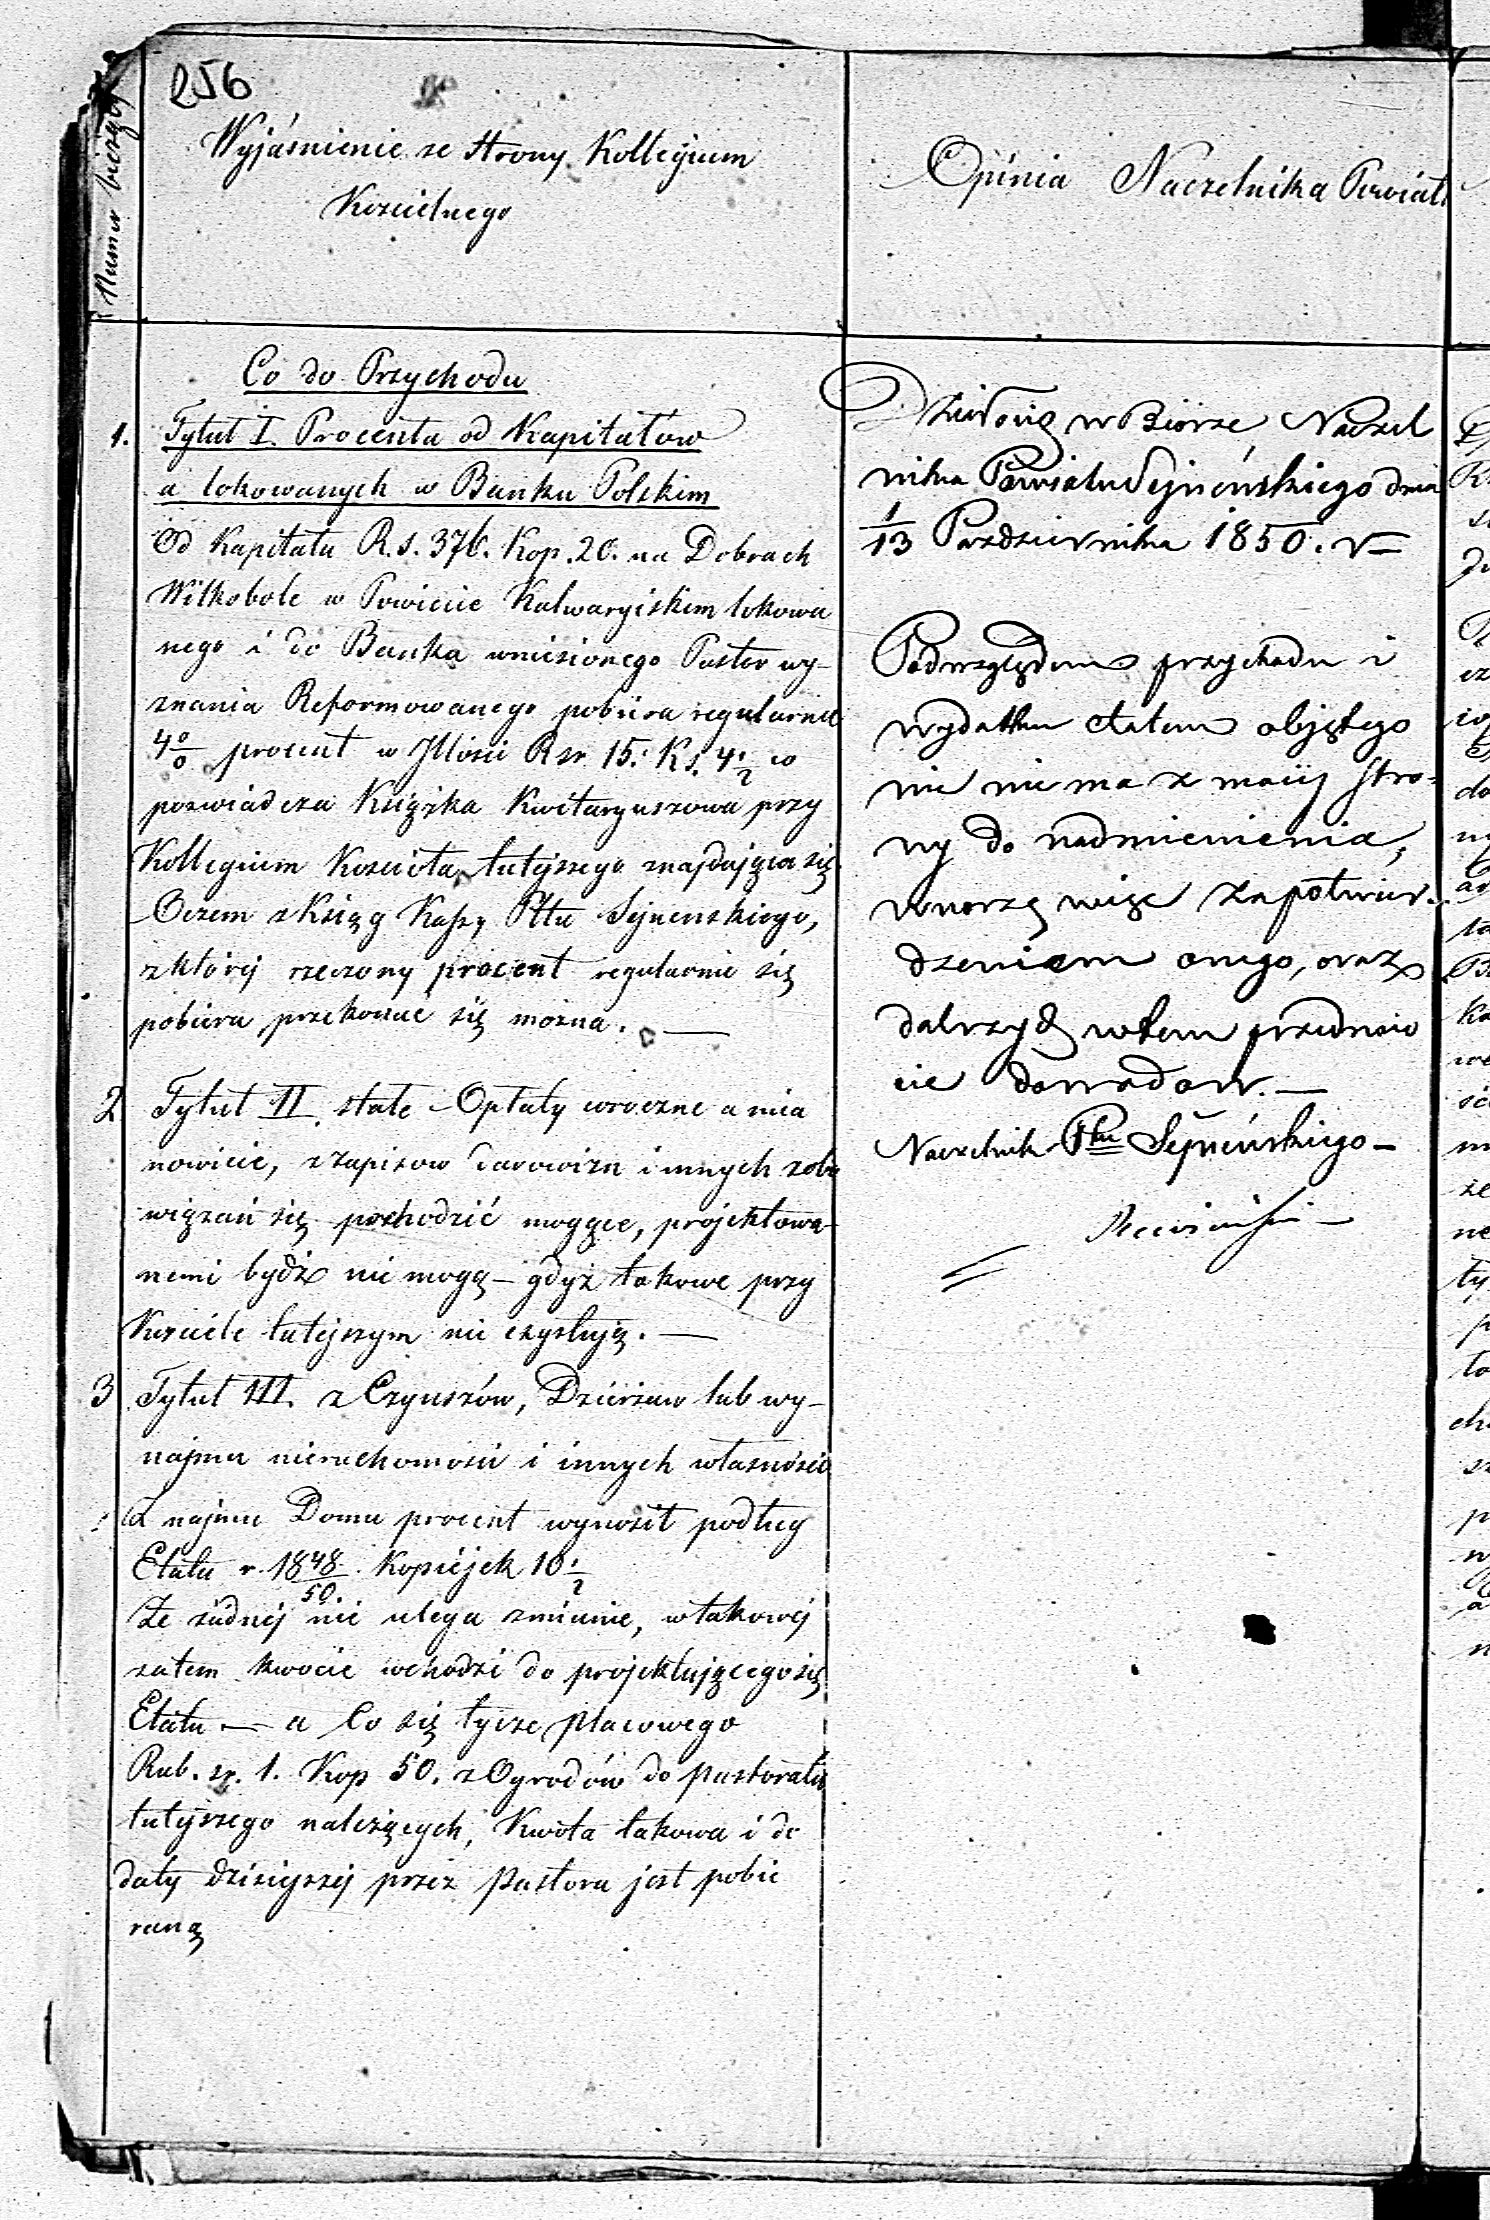 256
Numer bieżący
Wyjaśnienie ze strony Kollegium
Kościelnego
Co do Przychodu
1. Tytuł I. Procenta od Kapitałów
a lokowanych w Banku Polskim
Od Kapitału R.s. 376. Kop. 20. na Dobrach
Wilkobole w Powiecie Kalwaryiskim lokowa
nego i do Banka wniesionego Pastor wy-
znania Reformowanego pobiera regularnie
4% procent w Jlości Rsr. 15. K s. 4 1/2 co
poświadcza Książka Kwitaryuszowa przy
Kollegium Kościoła tutejszego znajdująca się
Oczem z Ksiąg Kassy Pttu Sejnenskiego,
z której rzeczony procent regularnie się
pobiera przekonać się można. —
2 Tytuł II. stałe Opłaty coroczne a mia
nowicie, z zapisow darowizn i innych zobo
wiązań się pochodzić mogące, projektowa-
nemi bydź nie mogą — gdyż takowe przy
Kosciele tutejszym nie exystują. —
3 Tytuł III. z Czynszów, Dzierżaw lub wy-
najmu nieruchomości i innych własności
Z najmu Domu procent wynosił podług
Etatu r. 1848/50. Kopiejek 10 1/2
że żadnej nie ulega zmianie, w takowej
zatem kwocie wchodzi do projektującego się
Etatu — a Co się tycze placowego
Rub. sr. 1. Kop 50. z Ogrodów do pastoratu
tutejszego należących, Kwota takowa i do
daty dzisiejszej przez Pastora jest pobie
raną
Opinia Naczelnika Powiatu
Działo się w Biórze Naczel
nika Powiatu Sejneńskiego dnia
1/13 Pazdziernika 1850. r —
Pod względem przychodu i
wydatku etatem objętego
nie nie ma z mojej stro-
ny do nadmienienia,
wnoszę więc za potwier-
dzeniem onego, oraz
dalszych w tem przedmio
cie dowodow. —
Naczelnik Ptu Sejneńskiego —